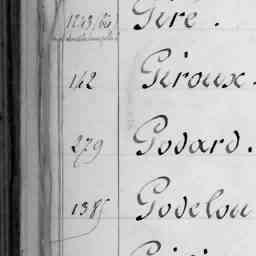 1243 (bis) Giré.
142 Giroux.
279 Godard.
1385 Godelou